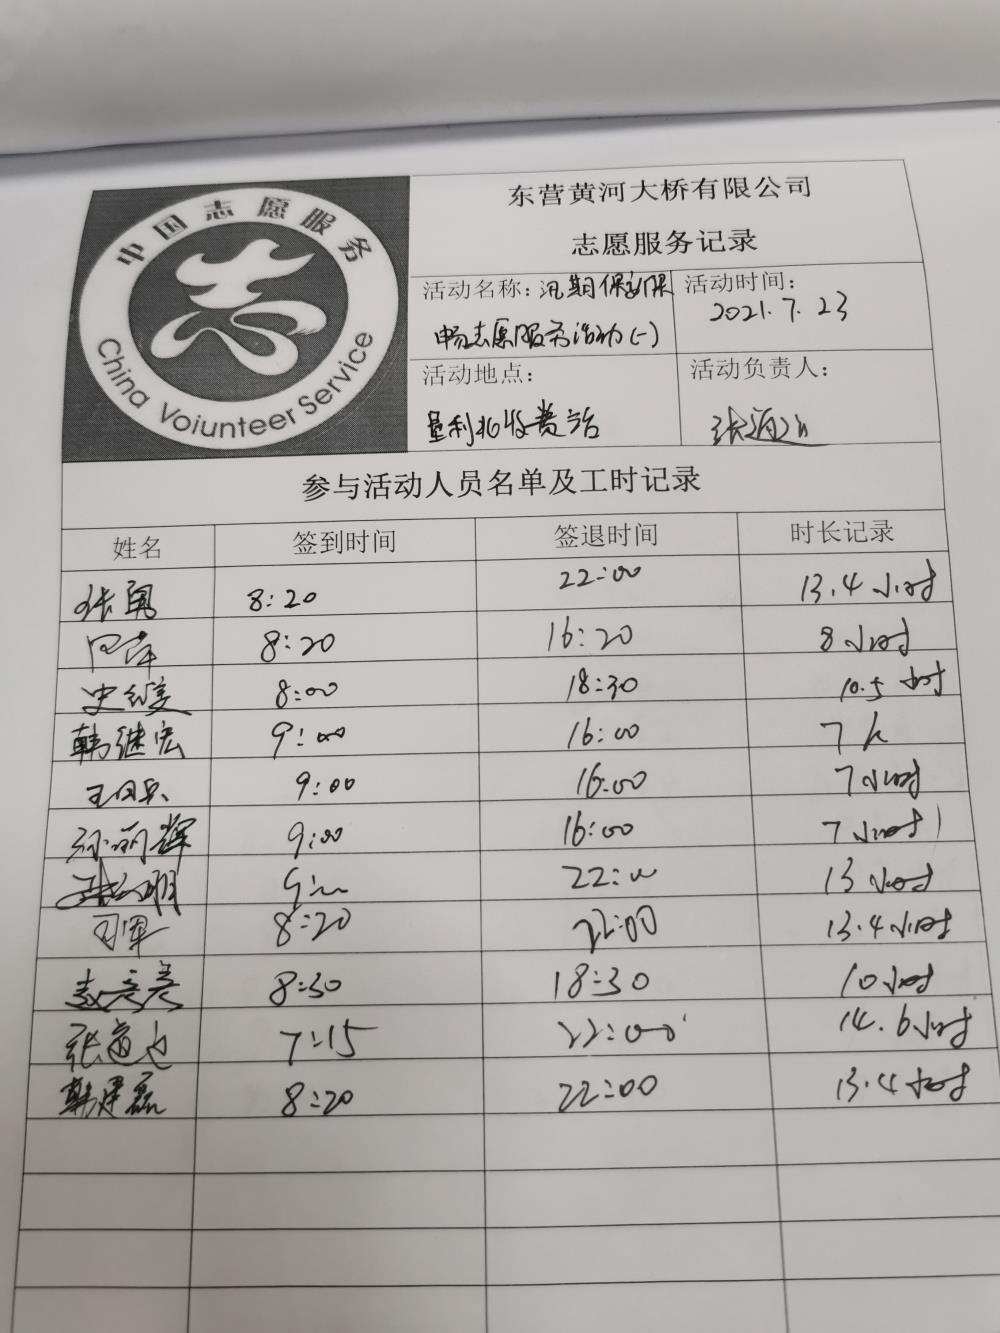 中国志愿服务
China Voiunteer Service
东营黄河大桥有限公司
志愿服务记录
活动名称：汛期保安保
畅志愿服务活动(一)
活动时间：
2021.7.23
活动地点：
垦利北收费站
活动负责人：
张
参与活动人员名单及工时记录
姓名 签到时间 签退时间 时长记录
张 8:20 22:00 13.4小时
8:20 16:20 8小时
史 8:00 18:30 10.5小时
韩继宏 9:00 16:00 7h
王 9:00 16:00 7小时
孙丽辉 9:00 16:00 7小时
明 9:00 22:00 13小时
军 8:20 22:00 13.4小时
赵 8:30 18:30 10小时
张 7:15 22:00 14.6小时
韩建磊 8:20 22:00 13.4小时